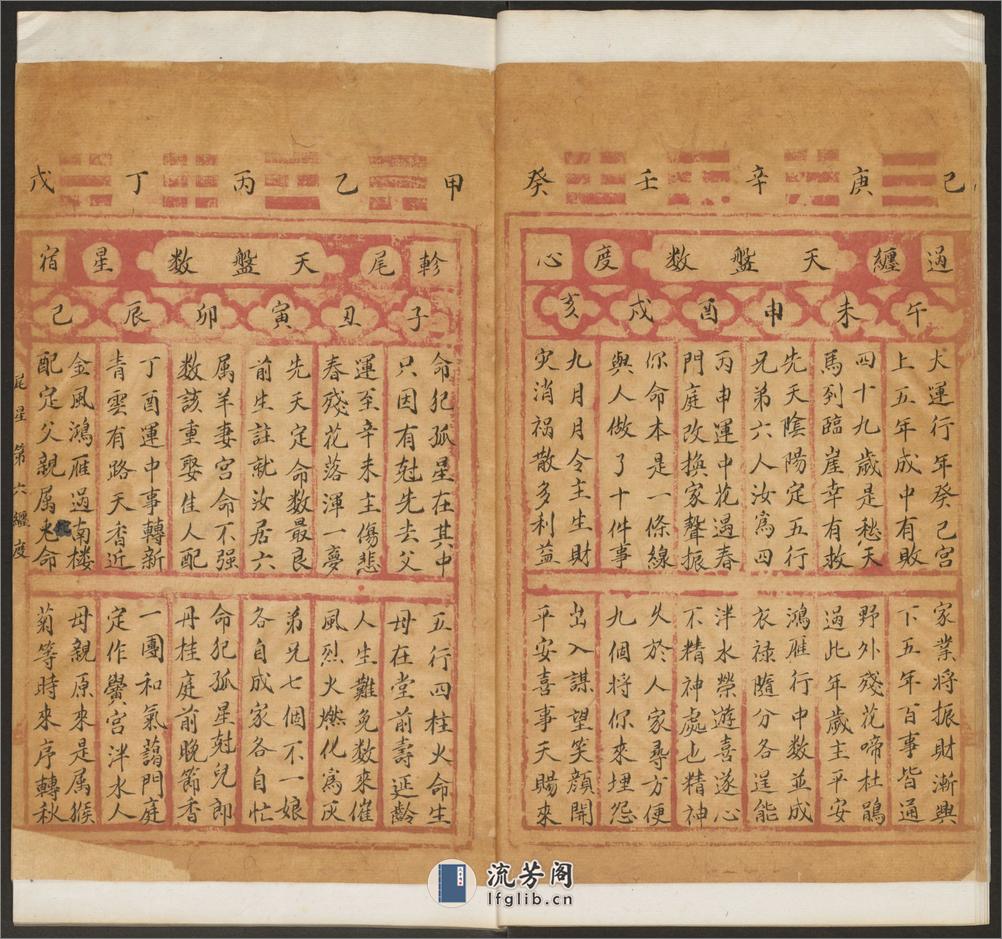 己 庚 辛 壬 癸
過 纏 天盤数 度 心
午 未 申 酉 戌 亥
大運行年癸己宫
上五年成中有敗
四十九歲是愁天
馬到臨崖幸有救
先天陰陽定五行
兄弟六人汝爲四
丙申運中花過春
門庭改換家聲振
你命本是一條線
與人做了十件事
九月月令主生財
灾消祸散多利益
家業將振財漸興
下五年百事皆通
野外殘花啼杜鵑
過此年歲主平安
鴻雁行中数並成
衣禄隨分各逞能
泮水榮遊喜遂心
不精神處也精神
久於人家尋方便
九個將你來埋怨
出入謀望笑顔開
平安喜事天賜來
甲 乙 丙 丁 戊
軫 尾 天盤数 星 宿
子 丑 寅 卯 辰 己
命犯孤星在其中
只因有尅先去父
運至辛未主傷悲
春殘花落渾一夢
先天定命数最良
前生註就汝居六
属羊妻宫命不强
数該重娶佳人配
丁酉運中事轉新
青雲有路天香近
金風鴻雁過南楼
配定父親属 命
五行四柱火命生
母在堂前壽延齡
人生難免数來催
風烈火燃化爲灰
弟兄七個不一娘
各自成家各自忙
命犯孤星尅兒郎
丹桂庭前晚節香
一團和氣藹門庭
定作黌宫泮水人
母親原來是属猴
菊等時來序轉秋
尾星第六纏度
流芳阁
lfglib.cn